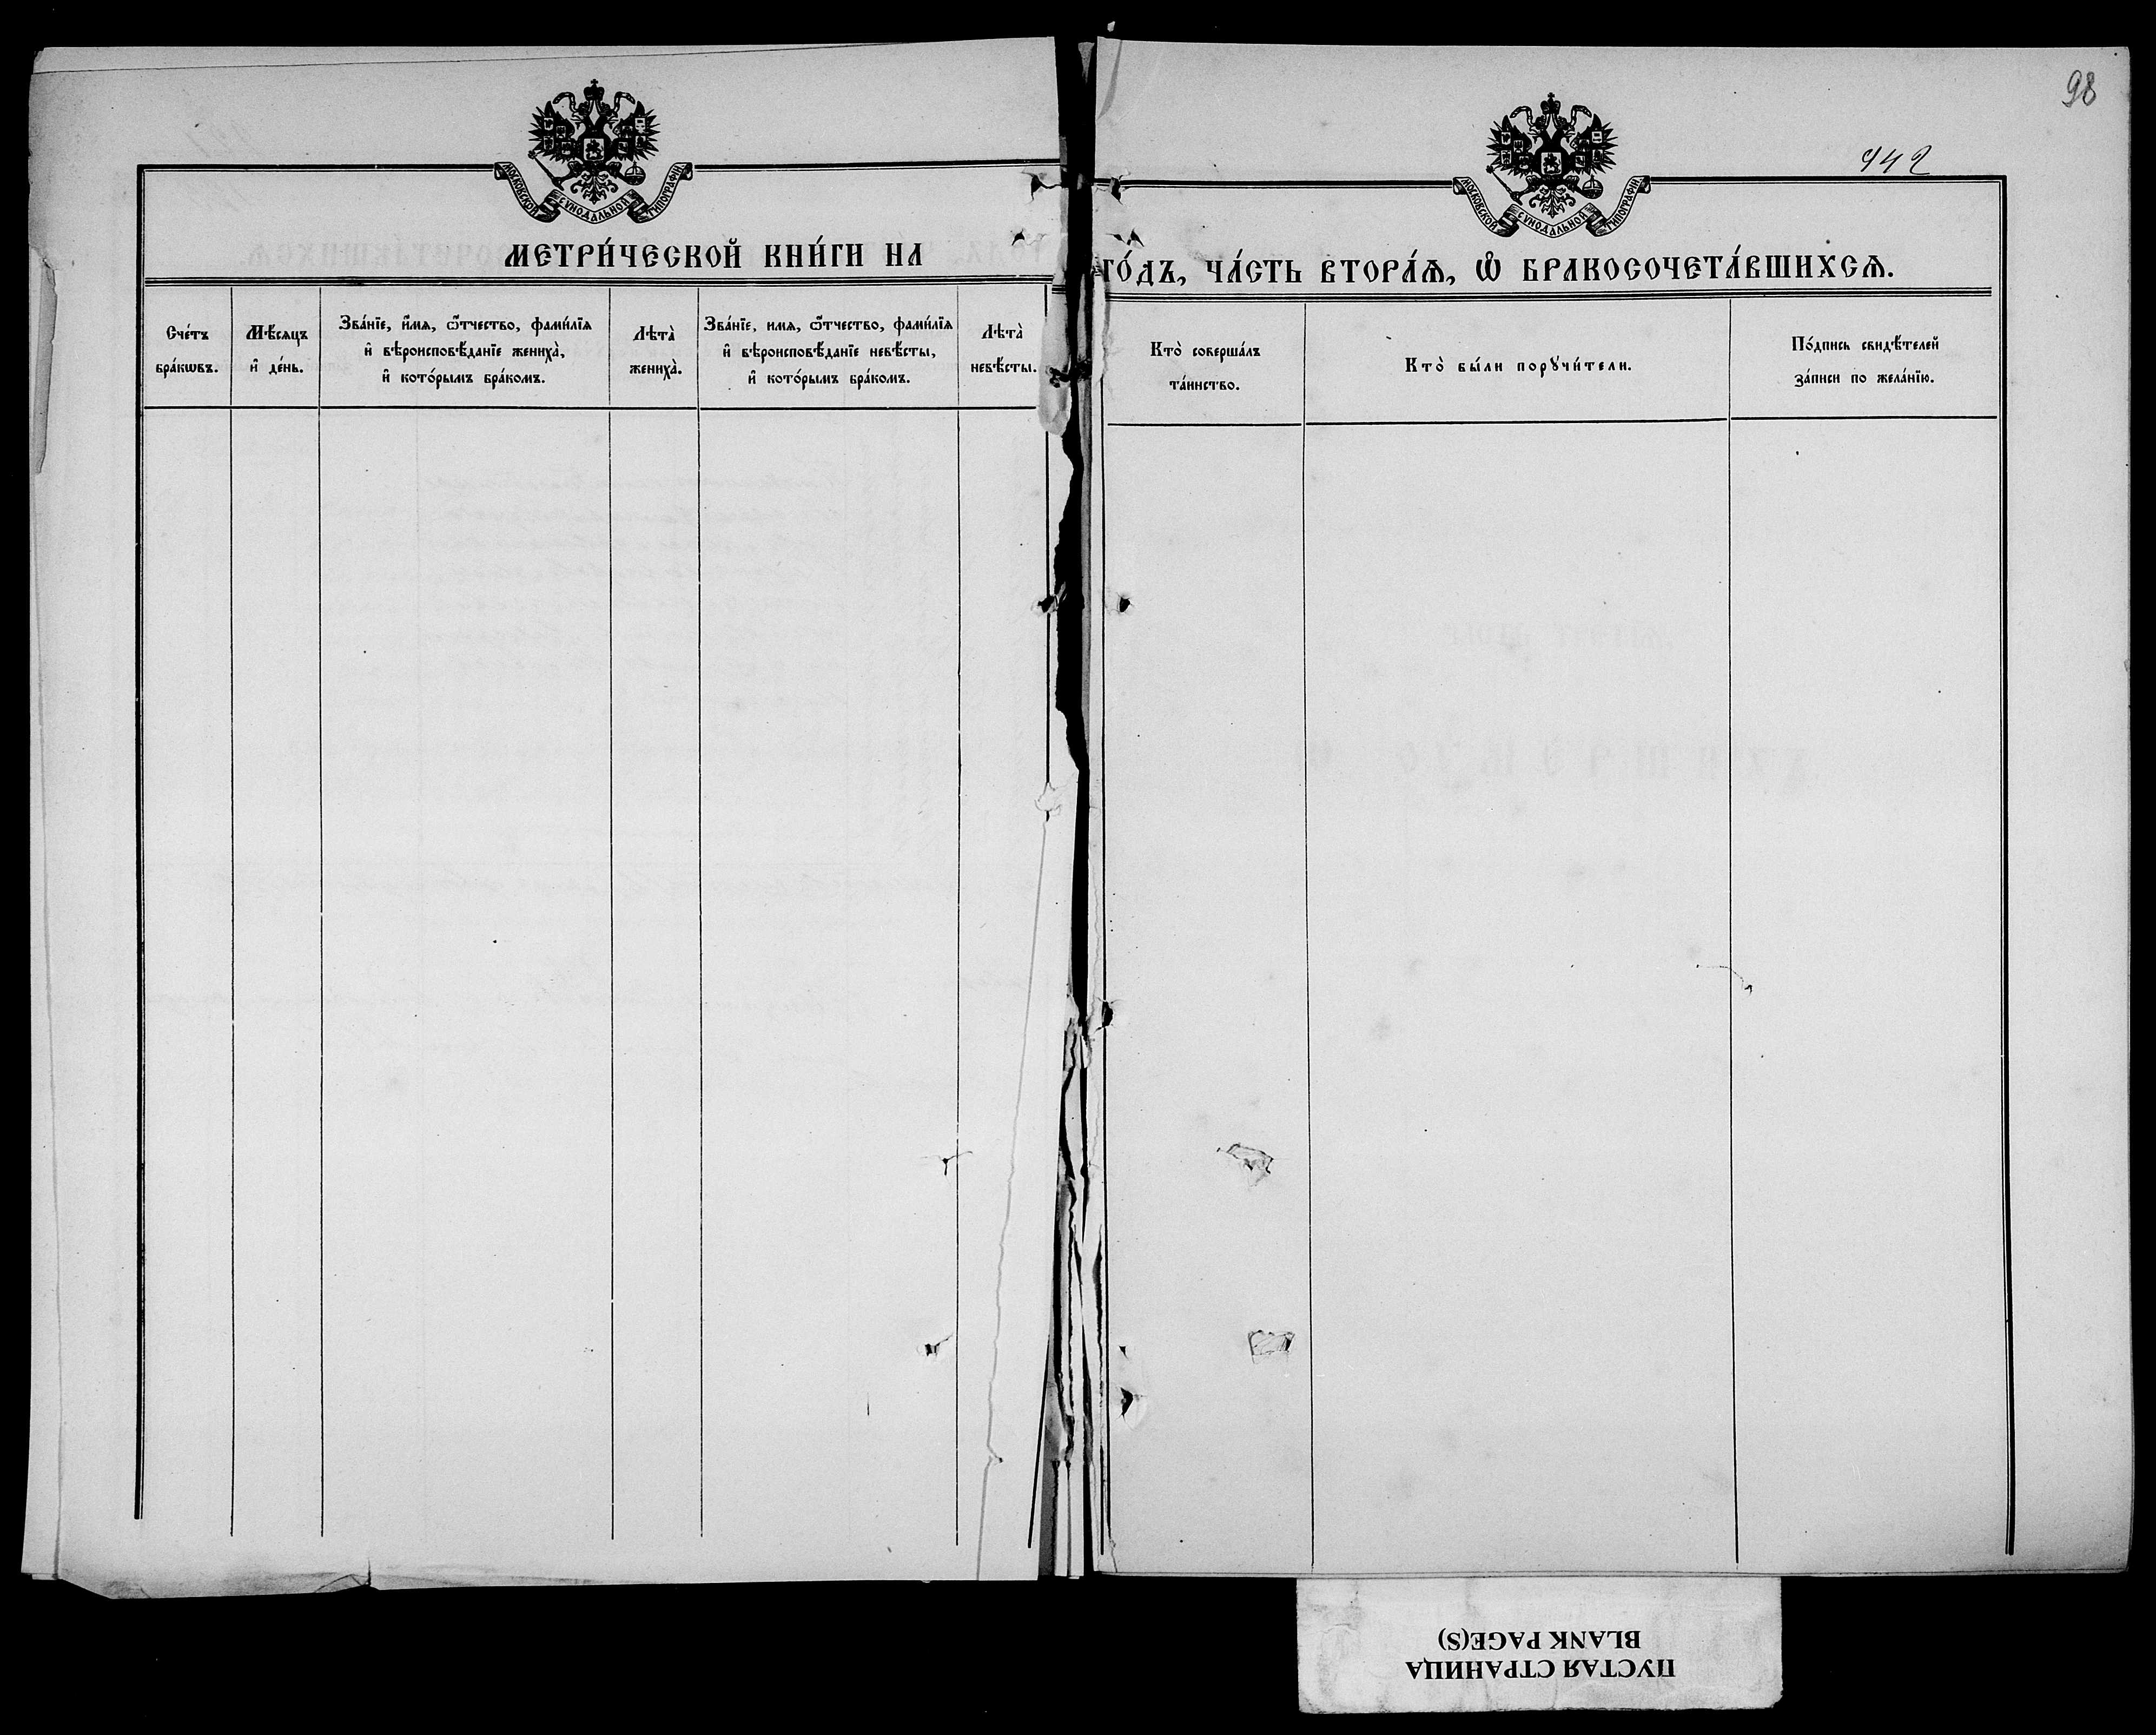 98
942
МОСКОВСКОЙ СѴНОДАЛЬНОЙ ТИПОГРАФІИ.
МОСКОВСКОЙ СѴНОДАЛЬНОЙ ТИПОГРАФІИ.
МЕТРИ́ЧЕСКОЙ КНИ́ГИ НА
ГО́ДЪ, ЧА́СТЬ ВТОРА́Ѧ, Ѽ БРАКОСОЧЕТА́ВШИХСѦ.
Сче́тъ
бра́кѡвъ.
Мѣ́сѧцъ
и҆ де́нь.
Зва́нїе, и҆́мѧ, ѻ҆́тчество, фами́лїѧ
и҆ вѣроисповѣ́данїе жениха̀,
и҆ кото́рымъ бра́комъ.
Лѣта̀
жениха̀.
Зва́нїе, имѧ, ѻ҆́тчество, фами́лїѧ
и҆ вѣроисповѣ́данїе невѣ́сты,
и҆ кото́рымъ бра́комъ.
Лѣта̀
невѣ́сты.
Кто̀ соверша́лъ
та́инство.
Кто̀ бы́ли порꙋчи́тели.
По́дпись свидѣ́телей
за́писи по жела́нїю.
ПУСТАЯ СТРАНИЦА
BLANK PAGE(S)